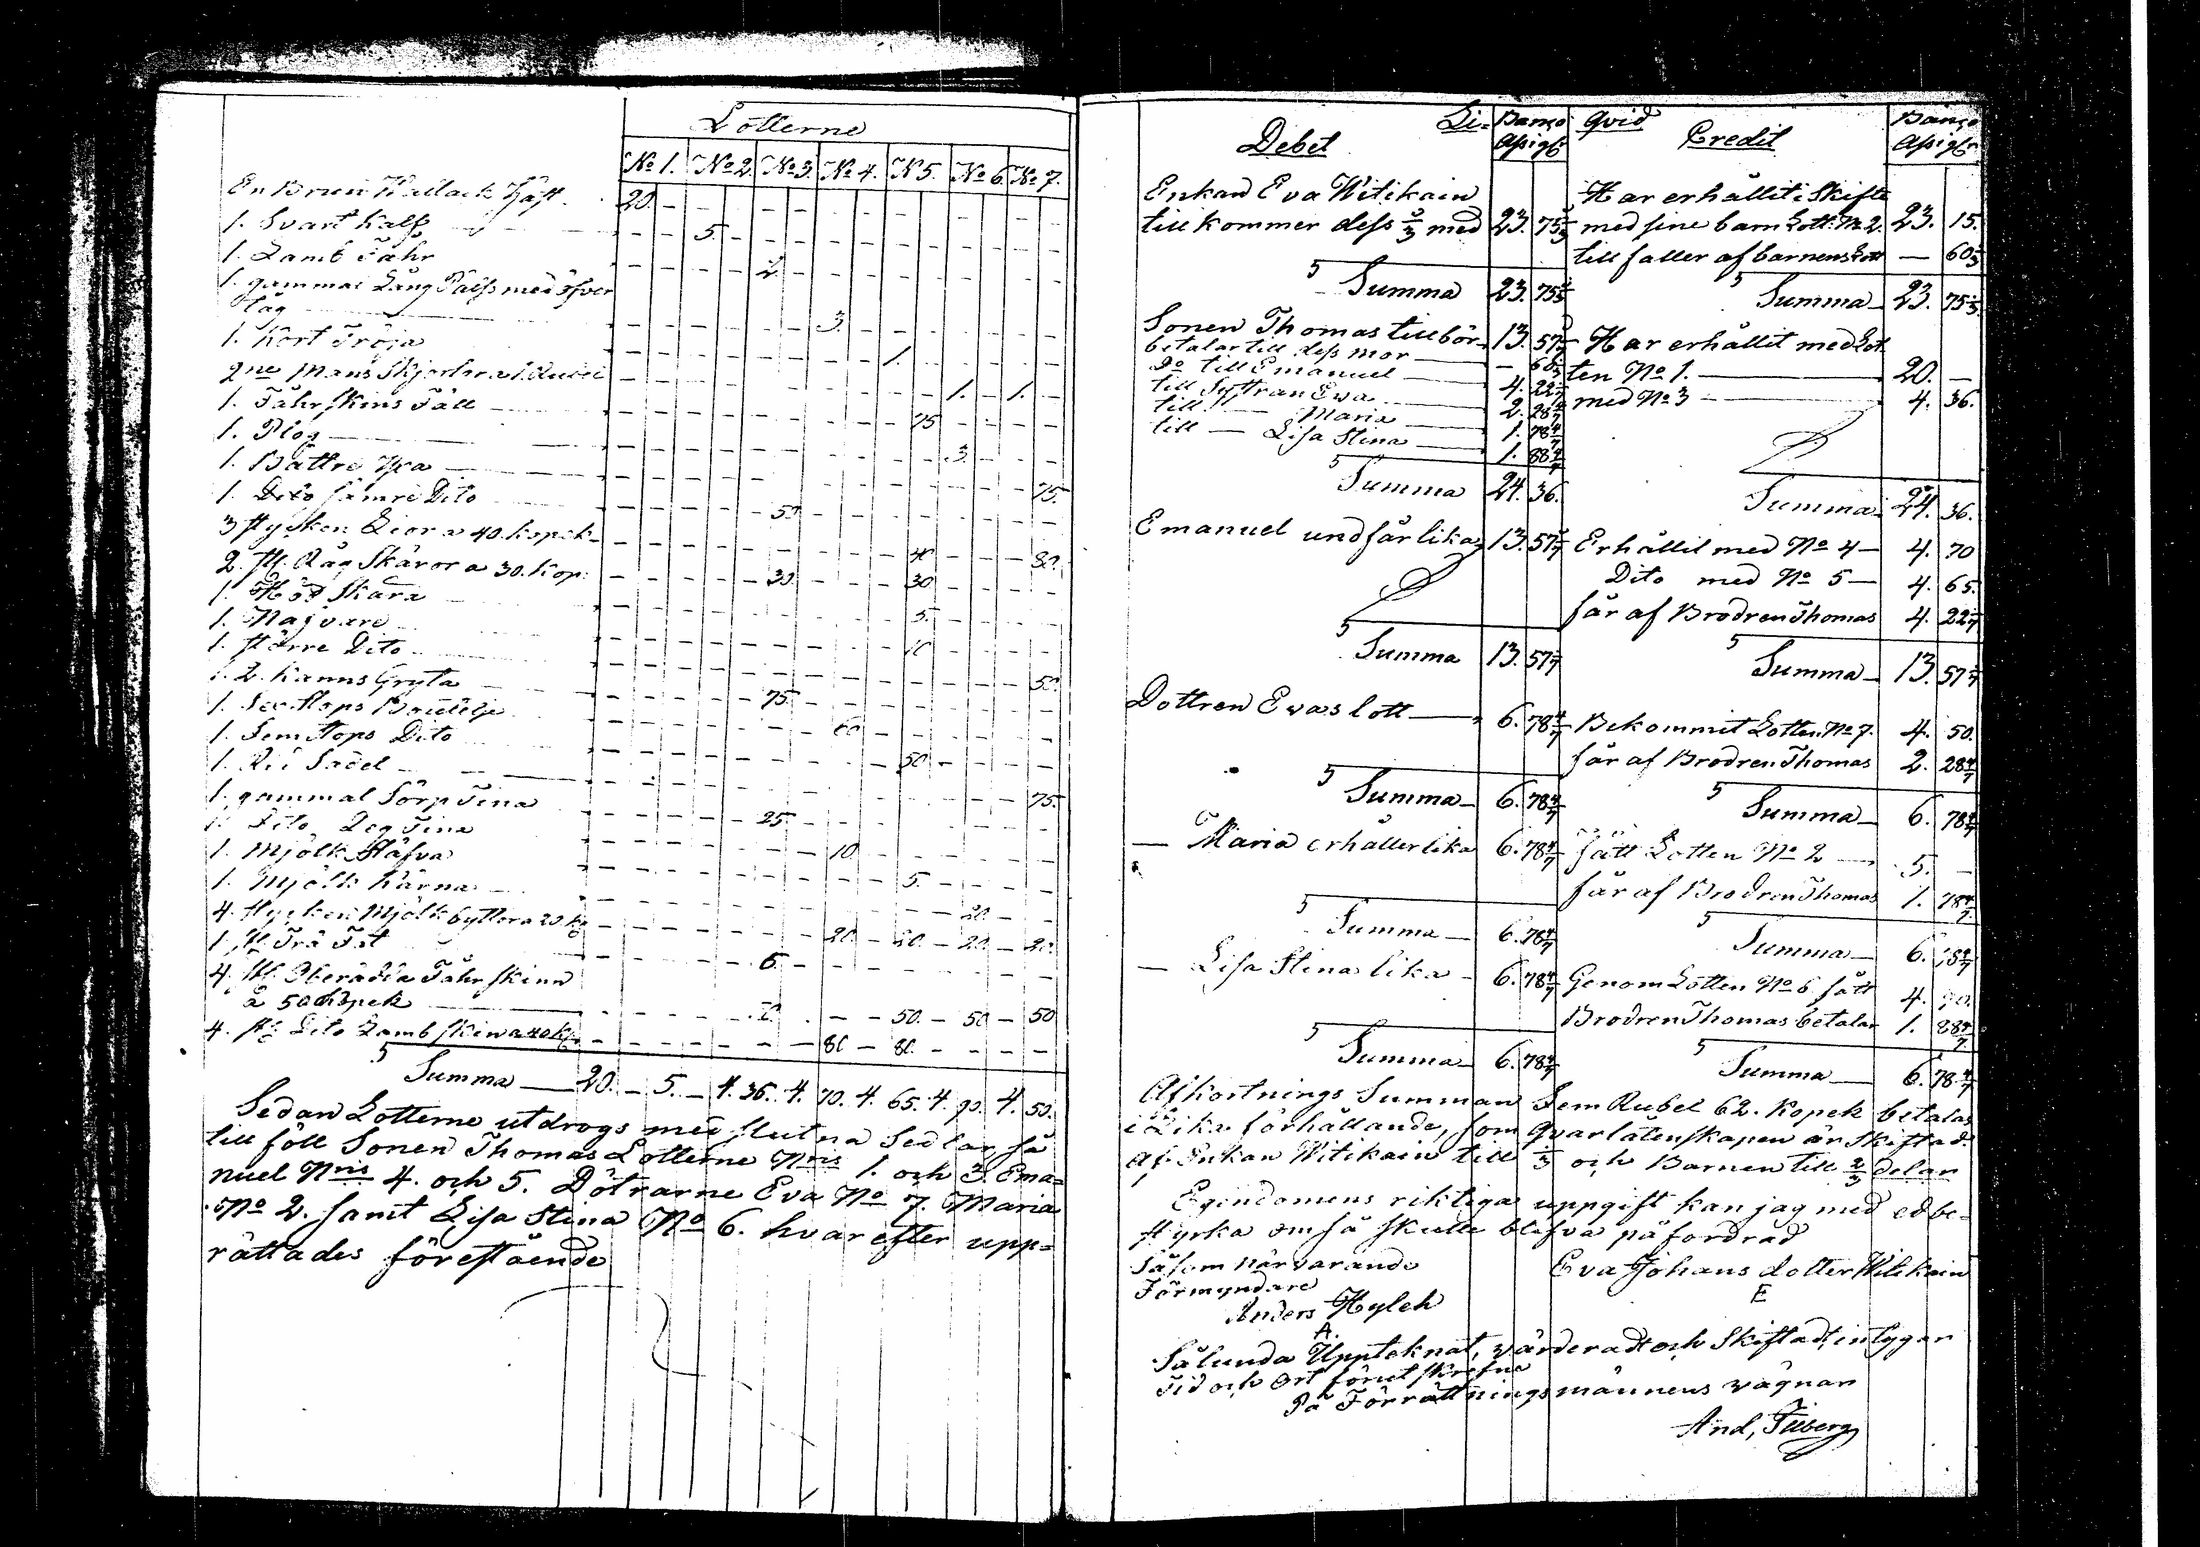 Lotterne
No 1. No 2. No 3. No 4. N 5. No 6. No 7.
En Brun Wallack Häst 20. -
1. Svart Kalf 5. -
1. Lamb Fåhr 2. -
1. gammal Lång Pälss med öfver
tåg 3. -
1. Kort Tröja 1. -
2ne Mans Skjortor a 1. Rubel 1. - 1. -
1. Fåhr Skins Fäll 75
1. Plog 3. -
1. Bättre Yxa 75.
1. Dito sämre Dito 50
3 stycken Lior a 40. kopek 40 80.
2. st. Råg Skäror a 30. kop. 30 30
1. Hö Skära 5.
1. Nafvare 10
1. större Dito 50.
1. 2. Kanns Gryta 75.
1. Sex stops Boutelje 60
1. Fem stops Dito 50. -
1. Rid Sadel 75.
1. gammal Sörp Tina 25.
1. Dito Deg Tina 10
1. Mjölk Stäfva 5. -
1. Mjölk Kärna 20. -
4. stycken Mjölk byttor a 20 kp 20. - 20. - 20. - 20.
1. st. Trä Fat 6. -
4. st. Oberädda Fåhr Skinn
å 50 Kopek 50. - 50 - 50
4. st. Dito Lamb Skin a 40 kp 80 - 80. -
Summa 20. - 5. - 4. 36. 4. 70. 4. 65. 4. 90. 4. 50.
Sedan Lotterne utdrogs med slutna Sedlar så
till föll Sonen Thomas Lotterne Nris 1. och 3. Ema=
nuel Nris 4. och 5. Dötrarne Eva No 7. Maria
No 2. samt Lisa Stina No 6. hvarefter upp=
rättades förestående
Debet Li= Banco Assigt.
Enkan Eva Witikain
till kommer dess 1/3 med 23. 75 5/7
Summa 23. 75
Sonen Thomas tillbör 13. 57 1/7
betalar till dess mor - 60
Do till Emanuel 4. 22 1/7
till Systran Ewa 2. 28 4/7
till — Maria 1. 78 4/7
till — Lisa Stina 1. 88 4/7
Summa 24. 36.
Emanuel undfår lika 13. 57 1/7
Summa 13. 57 1/7
Dottren Evas lott 6. 78 4/7
Summa 6. 78 4/7
— Maria erhåller lika 6. 78 4/7
Summa 6. 78 4/7
— Lisa Stina lika 6. 78 4/7
Summa 6. 78 4/7
qvid Credit Banco Assigt.
Har erhållit i Skifte
med sine barn Lott. No 2. 23. 15.
till faller af barnens Lott — 60
Summa 23. 75
Har erhållit med Lot
ten No 1. 20. —
med No 3 4. 36.
Summa 24. 36.
Erhållit med No 4 4. 70
Dito med No 5 4. 65.
får af Brodren Thomas 4. 22 1/7
Summa 13. 57 1/7
Bekommit Lotten No 7. 4. 50.
får af Brodren Thomas 2. 28 4/7
Summa 6. 78 4/7
fått Lotten No 2 5. —
får af Brodren Thomas 1. 78 4/7
Summa 6. 78 4/7
Genom Lotten No 6 fått 4. 90.
Brodren Thomas betalar 1. 88 4/7
Summa 6. 78 4/7
Afkortnings Summan Fem Rubel 62. Kopek betalas
i Lika förhållande, som qvarlåtenskapen är Skiftad.
Af Enkan Witikain till 1/3 och Barnen till 2/3 delar
Egendomens riktiga uppgift kan jag med ed be=
styrka om så skulle blifva påfordrad
Såsom närvarande Eva Johans dotter Witikain
Förmyndare E
Anders Hyleh
A.
Sålunda Uppteknat, värderadt och Skiftadt, intygar
Tid och Ort förut skrefne
På Förrättningsmännens vägnar
And, Filberg